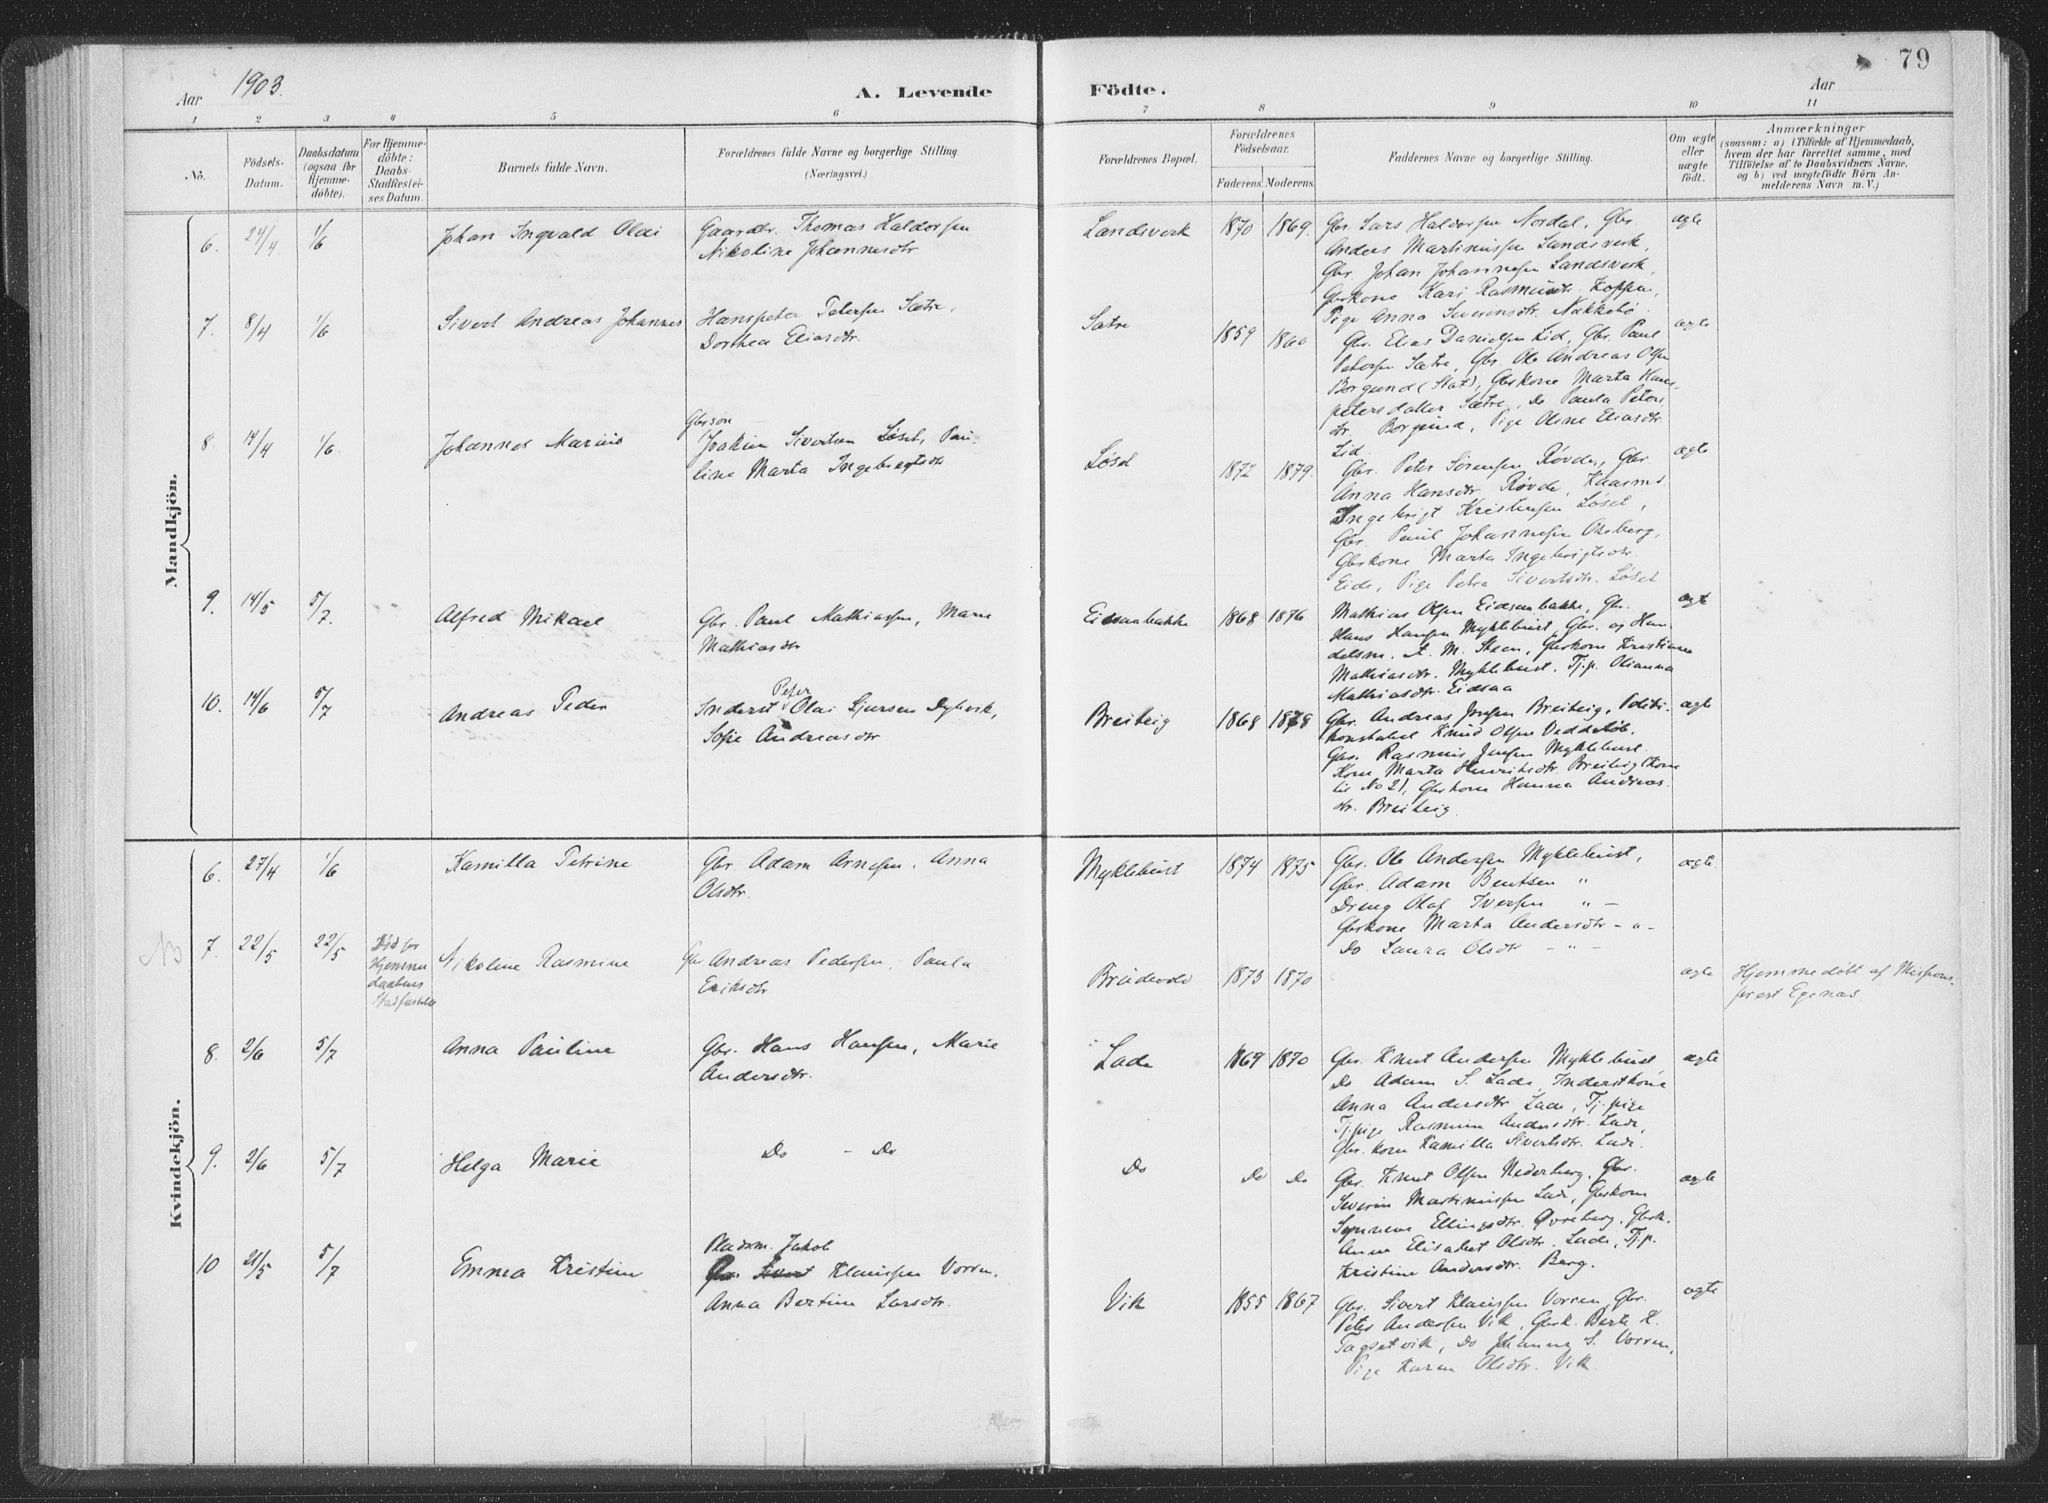 79
Aar 1903. A. Levende Födte. Aar
1 2 3 4 5 6 7 8 9 10 11
No.
Födsels-
Datum.
Daabsdatum
(ogsaa for
Hjemme-
döbte).
For Hjemme-
döbte:
Daabs-
Stadfæstel-
ses Datum.
Barnets fulde Navn.
Forældrenes fulde Navne og borgerlige Stilling
(Næringsvei.)
Forældrenes Bopæl.
Forældrenes
Födselsaar.
Faderens. Moderens.
Faddernes Navne og borgerlige Stilling.
Om ægte
eller
uægte
födt.
Anmærkninger
(saasom: a) i Tilfælde af Hjemmedaab,
hvem der har forrettet samme, med
Tilföielse af to Daabsvidners Navne,
og b) ved uægtefödte Börn An-
melderens Navn m. V.)
Mandkjön.
6. 24/4 1/6 Johan Ingvald Olai
Gaardbr. Thomas Haldorsen
Nikoline Johannesdtr
Landsverk 1870 1869.
Gbr. Lars Haldorsen Nordal, Gbr
Anders Martinussen Landsverk,
Gbr Johan Johannesen Landsverk,
Gbrkone Kari Rasmusdtr. Koppen,
Pige Anna Severinsdtr. Nakkebø
ægte
7. 8/4 1/6 Sivert Andreas Johannes
Hanspeter Petersen Sætre,
Dorthea Eliasdtr.
Sætre 1859 1860
Gbr. Elias Danielsen Lid, Gbr. Paul
Petersen Sætre, Gbr. Ole Andreas Olsen
Borgund (Stat), Gbrkone Marta Hans-
petersdatter Sætre, Do Paula Peters
dtr. Borgund, Pige Oline Eliasdtr
Lid.
ægte
8 14/4 1/6. Johannes Marius
Gbrsøn
Joakim Sivertsen Løset, Pau-
line Marta Ingebrigtsdtr
Løset 1872 1879.
Gbr. Peter Sørensen Røvde, Gbr
Anna Hansdtr. Røvde, Kaarmd
Ingebrigt Kristensen Løset,
Gbr. Paul Johannesen Aaberg,
Gbrkone Marta Ingebrigtsdtr.
Eide, Pige Petra Sivertsdtr. Løset
ægte
9. 14/5 5/7. Alfred Mikael
Gbr. Paul Mathiassen, Marie
Mathiasdtr
Eidsaabakke 1868 1876
Mathias Olsen Eidsaabakke, Gbr.
Hans Hansen Myklebust, Gbr. og Han-
delsm. A. M. Steen, Gbrkone Kristianne
Mathiasdtr. Myklebust. Tj.p. Olianna
Mathiasdtr. Eidsaa
ægte
10. 14/6 5/7 Andreas Peder
Peter
Inderst Olai Sjursen Dybvik,
Sofie Andreasdtr
Breiteig 1868 1878
Gbr. Andreas Jensen Breiteig, Politi-
konstabel Knud Olsen Veddeløb.
Gbr. Rasmus Jensen Myklebust
Kone Marta Henriksdtr. Breiteig (Kone
til No 2), Gbrkone Hanna Andreas-
dtr. Breiteig.
ægte
Kvindekjön.
6. 27/4 1/6 Kamilla Petrine
Gbr Adam Arnesen, Anna
Olsdtr.
Myklebust 1874 1875
Gbr. Ole Andersen Myklebust,
Gbr. Adam Bentsen "
Dreng Olaf Iversen " –
Gbrkone Marta Andersdtr - " -
Do Laura Olsdtr - " -
ægte.
NB 7. 22/5 22/5 Død før
Hjemme
daabens
Stadfæstelse
Nikoline Rasmine
Gbr Andreas Pedersen, Paula
Eriksdtr
1873 1870
ægte
Hjemmedøbt af Missions-
prest Egenæs.
8. 2/6 5/7 Anna Pauline
Gbr. Hans Hansen, Marie
Andersdtr.
Lade 1869 1870
Gbr. Knut Andersen Myklebust
Do Adam S. Lade, Inderstkone
Anna Andersdtr Lade, Tj.pige
Tj.pige Rasmine Andersdtr. Lade,
Gbr. kone Kamilla Sivertsdtr. Lade.
ægte
9. 2/6 5/7 Helga Marie
Do – Do
Do Do Do
Gbr. Knut Olsen Nederberg, Gbr.
Severin Martinussen Lade, Gbrkone
Synneve Ellingsdtr. Øvreberg, Gbrk.
Anne Elisabet Olsdtr. Lade, Tj.p.
Kristine Andersdtr. Berg.
ægte
10 21/5 5/7 Emma Kristine
Pladsm. Jakob
Gbr. Sivert Klausen Vorren,
Anna Bertine Larsdtr.
Vik 1855 1867
Gbr. Sivert Klausen Vorren, Gbr.
Peter Andersen Vik, Gbrk. Berte K.
Tagsetvik, Do Johanne S. Vorren,
Pige Karen Olsdtr. Vik.
ægte